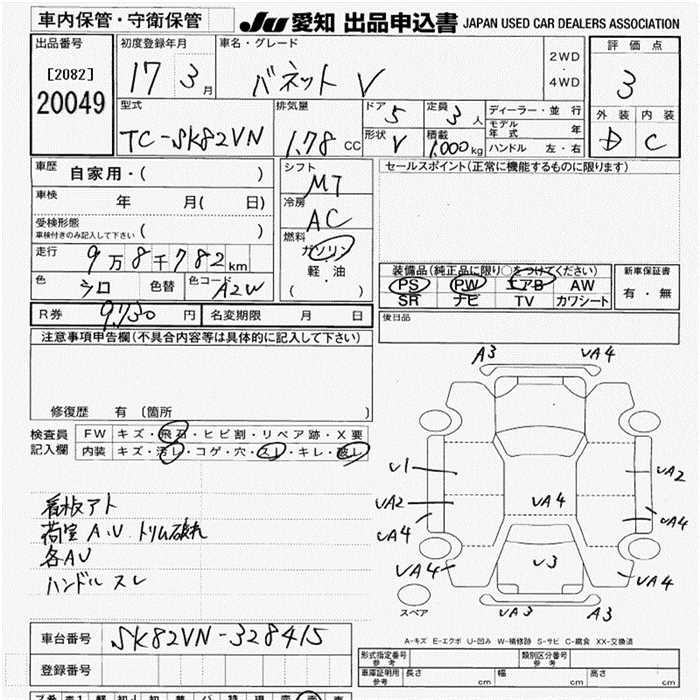 車内保管・守衛保管 JU 愛知 出品申込書 JAPAN USED CAR DEALERS ASSOCIATION
出品番号 初度登録年月 車名・グレード 評価点
[2082] 17 3月 バネット V 2WD・4WD 3
20049
型式 排気量 ドア 5 定員 3人 ディーラー・並行 外装 内装
TC-SK82VN 1.78 CC 形状 V 積載 1,000kg モデル年式 年 D C
ハンドル 左・右
車歴 自家用・( ) シフト MT セールスポイント(正常に機能するものに限ります)
車検 年 月( 日) 冷房 AC
受検形態 ( )
車検付きのみ記入して下さい
燃料
走行 9万8千782km ガソリン
軽・油
( ・ )
色 シロ 色替 色コード A2W
装備品(純正品に限り○をつけてください) 新車保証書
PS PW エアB AW 有・無
SR ナビ TV カワシート
R券 9,730円 名変期限 月 日 後日品
注意事項申告欄(不具合内容等は具体的に記入して下さい)
修復歴 有 〔箇所 〕
検査員記入欄 FW キズ・飛石・ヒビ割・リペア跡・X要
内装 キズ・汚レ・コゲ・穴・スレ・キレ・破レ
看板アト
荷室 A.U トリム破れ
各AU
ハンドル スレ
A3 UA4
U1 UA2
UA2 UA4
UA4 UA4
UA4 U3 UA4
スペア UA3 A3
A-キズ E-エクボ U-凹み W-補修跡 S-サビ C-腐食 XX-交換済
車台番号 SK82VN-328415
登録番号
形式指定番号 参考 類別区分番号 参考
車庫証明用 参考 長さ cm 幅 cm 高さ cm